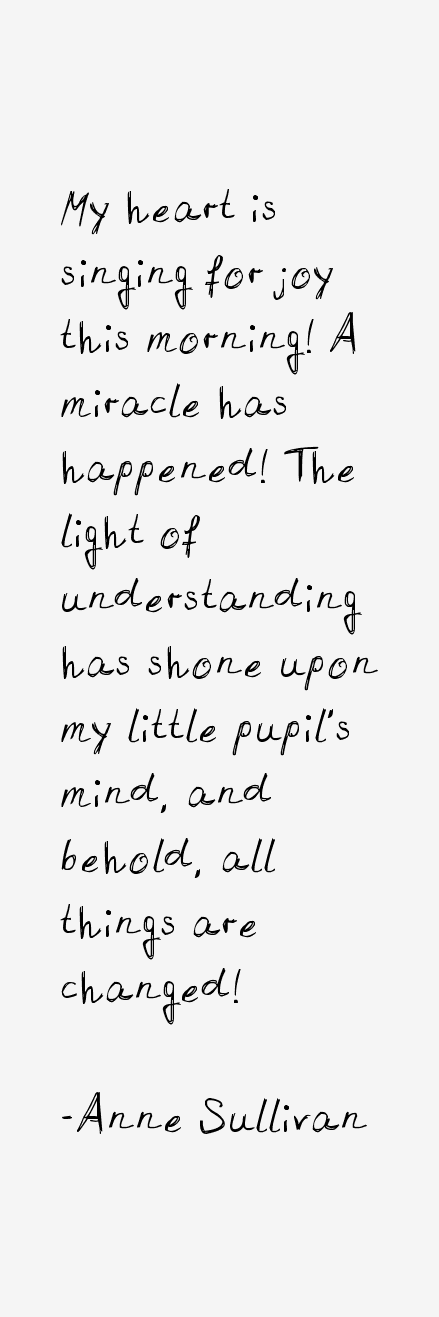 My heart is
singing for joy
this morning! A
miracle has
happened! The
light of
understanding
has shone upon
my little pupil's
mind, and
behold, all
things are
changed!
-Anne Sullivan